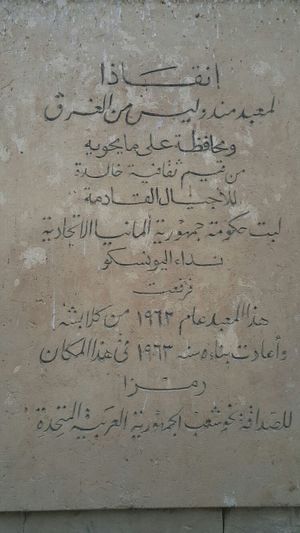 إنقاذا
لمعبد مندوليس من الغرق
ومحافظة على ما يحويه
من قيم ثقافية خالدة
للأجيال القادمة
لبت حكومة جمهورية ألمانيا الاتحادية
نداء اليونسكو
فرفعت
هذا المعبد عام ١٩٦٢ من كلابشه
وأعادت بناءه سنه ١٩٦٣ فى هذا المكان
رمزا
للصداقة نحو شعب الجمهورية العربية المتحدة